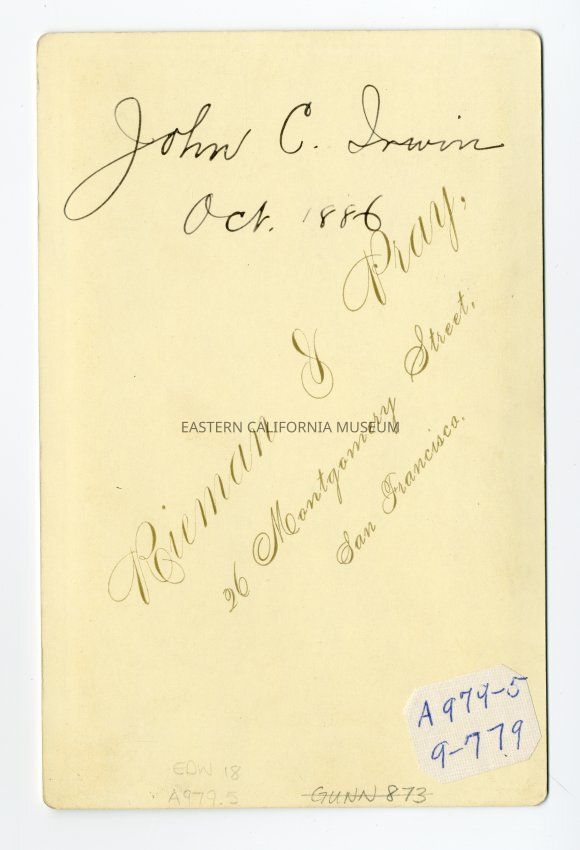 John C. Irwin
Oct. 1886
Rieman & Pray,
26 Montgomery Street,
San Francisco.
EASTERN CALIFORNIA MUSEUM
A979-5
9-779
EDW 18
A979.5
GUNN 873